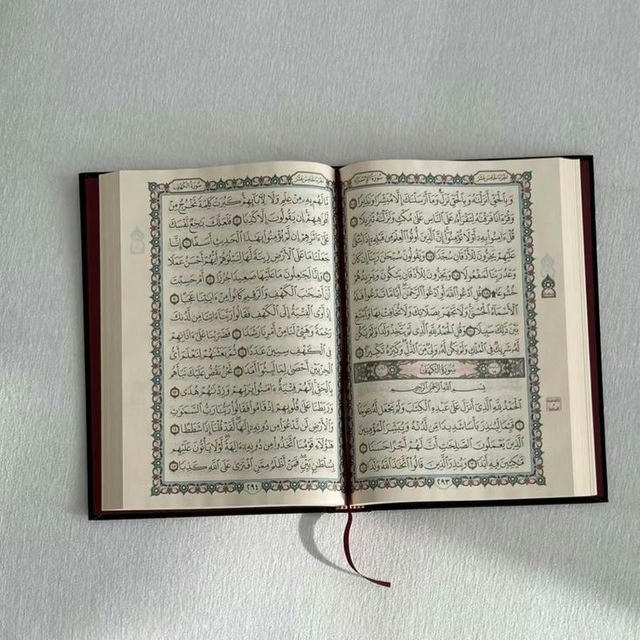 سُورَةُ الإِسْرَاءِ
الجُزْءُ الخَامِسَ عَشَرَ
وَبِالْحَقِّ أَنزَلْنَاهُ وَبِالْحَقِّ نَزَلَ وَمَا أَرْسَلْنَاكَ إِلَّا مُبَشِّرًا وَنَذِيرًا ١٠٥
وَقُرْآنًا فَرَقْنَاهُ لِتَقْرَأَهُ عَلَى النَّاسِ عَلَىٰ مُكْثٍ وَنَزَّلْنَاهُ تَنزِيلًا ١٠٦
قُلْ آمِنُوا بِهِ أَوْ لَا تُؤْمِنُوا إِنَّ الَّذِينَ أُوتُوا الْعِلْمَ مِن قَبْلِهِ إِذَا يُتْلَىٰ
عَلَيْهِمْ يَخِرُّونَ لِلْأَذْقَانِ سُجَّدًا ١٠٧ وَيَقُولُونَ سُبْحَانَ رَبِّنَا إِن كَانَ
وَعْدُ رَبِّنَا لَمَفْعُولًا ١٠٨ وَيَخِرُّونَ لِلْأَذْقَانِ يَبْكُونَ وَيَزِيدُهُمْ
خُشُوعًا ۩ ١٠٩ قُلِ ادْعُوا اللَّهَ أَوِ ادْعُوا الرَّحْمَٰنَ أَيًّا مَّا تَدْعُوا فَلَهُ
الْأَسْمَاءُ الْحُسْنَىٰ وَلَا تَجْهَرْ بِصَلَاتِكَ وَلَا تُخَافِتْ بِهَا وَابْتَغِ
بَيْنَ ذَٰلِكَ سَبِيلًا ١١٠ وَقُلِ الْحَمْدُ لِلَّهِ الَّذِي لَمْ يَتَّخِذْ وَلَدًا وَلَمْ يَكُن
لَّهُ شَرِيكٌ فِي الْمُلْكِ وَلَمْ يَكُن لَّهُ وَلِيٌّ مِّنَ الذُّلِّ وَكَبِّرْهُ تَكْبِيرًا ١١١
سُورَةُ الكَهْفِ
بِسْمِ اللَّهِ الرَّحْمَٰنِ الرَّحِيمِ
الْحَمْدُ لِلَّهِ الَّذِي أَنزَلَ عَلَىٰ عَبْدِهِ الْكِتَابَ وَلَمْ يَجْعَل لَّهُ عِوَجًا ١
قَيِّمًا لِّيُنذِرَ بَأْسًا شَدِيدًا مِّن لَّدُنْهُ وَيُبَشِّرَ الْمُؤْمِنِينَ
الَّذِينَ يَعْمَلُونَ الصَّالِحَاتِ أَنَّ لَهُمْ أَجْرًا حَسَنًا ٢
مَّاكِثِينَ فِيهِ أَبَدًا ٣ وَيُنذِرَ الَّذِينَ قَالُوا اتَّخَذَ اللَّهُ وَلَدًا ٤
٢٩٣
الجُزْءُ الخَامِسَ عَشَرَ
سُورَةُ الكَهْفِ
مَّا لَهُم بِهِ مِنْ عِلْمٍ وَلَا لِآبَائِهِمْ كَبُرَتْ كَلِمَةً تَخْرُجُ مِنْ
أَفْوَاهِهِمْ إِن يَقُولُونَ إِلَّا كَذِبًا ٥ فَلَعَلَّكَ بَاخِعٌ نَّفْسَكَ
عَلَىٰ آثَارِهِمْ إِن لَّمْ يُؤْمِنُوا بِهَٰذَا الْحَدِيثِ أَسَفًا ٦ إِنَّا
جَعَلْنَا مَا عَلَى الْأَرْضِ زِينَةً لَّهَا لِنَبْلُوَهُمْ أَيُّهُمْ أَحْسَنُ عَمَلًا
٧ وَإِنَّا لَجَاعِلُونَ مَا عَلَيْهَا صَعِيدًا جُرُزًا ٨ أَمْ حَسِبْتَ
أَنَّ أَصْحَابَ الْكَهْفِ وَالرَّقِيمِ كَانُوا مِنْ آيَاتِنَا عَجَبًا ٩
إِذْ أَوَى الْفِتْيَةُ إِلَى الْكَهْفِ فَقَالُوا رَبَّنَا آتِنَا مِن لَّدُنكَ
رَحْمَةً وَهَيِّئْ لَنَا مِنْ أَمْرِنَا رَشَدًا ١٠ فَضَرَبْنَا عَلَىٰ آذَانِهِمْ
فِي الْكَهْفِ سِنِينَ عَدَدًا ١١ ثُمَّ بَعَثْنَاهُمْ لِنَعْلَمَ أَيُّ
الْحِزْبَيْنِ أَحْصَىٰ لِمَا لَبِثُوا أَمَدًا ١٢ نَّحْنُ نَقُصُّ عَلَيْكَ نَبَأَهُم
بِالْحَقِّ إِنَّهُمْ فِتْيَةٌ آمَنُوا بِرَبِّهِمْ وَزِدْنَاهُمْ هُدًى ١٣
وَرَبَطْنَا عَلَىٰ قُلُوبِهِمْ إِذْ قَامُوا فَقَالُوا رَبُّنَا رَبُّ السَّمَاوَاتِ
وَالْأَرْضِ لَن نَّدْعُوَ مِن دُونِهِ إِلَٰهًا لَّقَدْ قُلْنَا إِذًا شَطَطًا ١٤
هَٰؤُلَاءِ قَوْمُنَا اتَّخَذُوا مِن دُونِهِ آلِهَةً لَّوْلَا يَأْتُونَ عَلَيْهِم
بِسُلْطَانٍ بَيِّنٍ فَمَنْ أَظْلَمُ مِمَّنِ افْتَرَىٰ عَلَى اللَّهِ كَذِبًا ١٥
٢٩٤